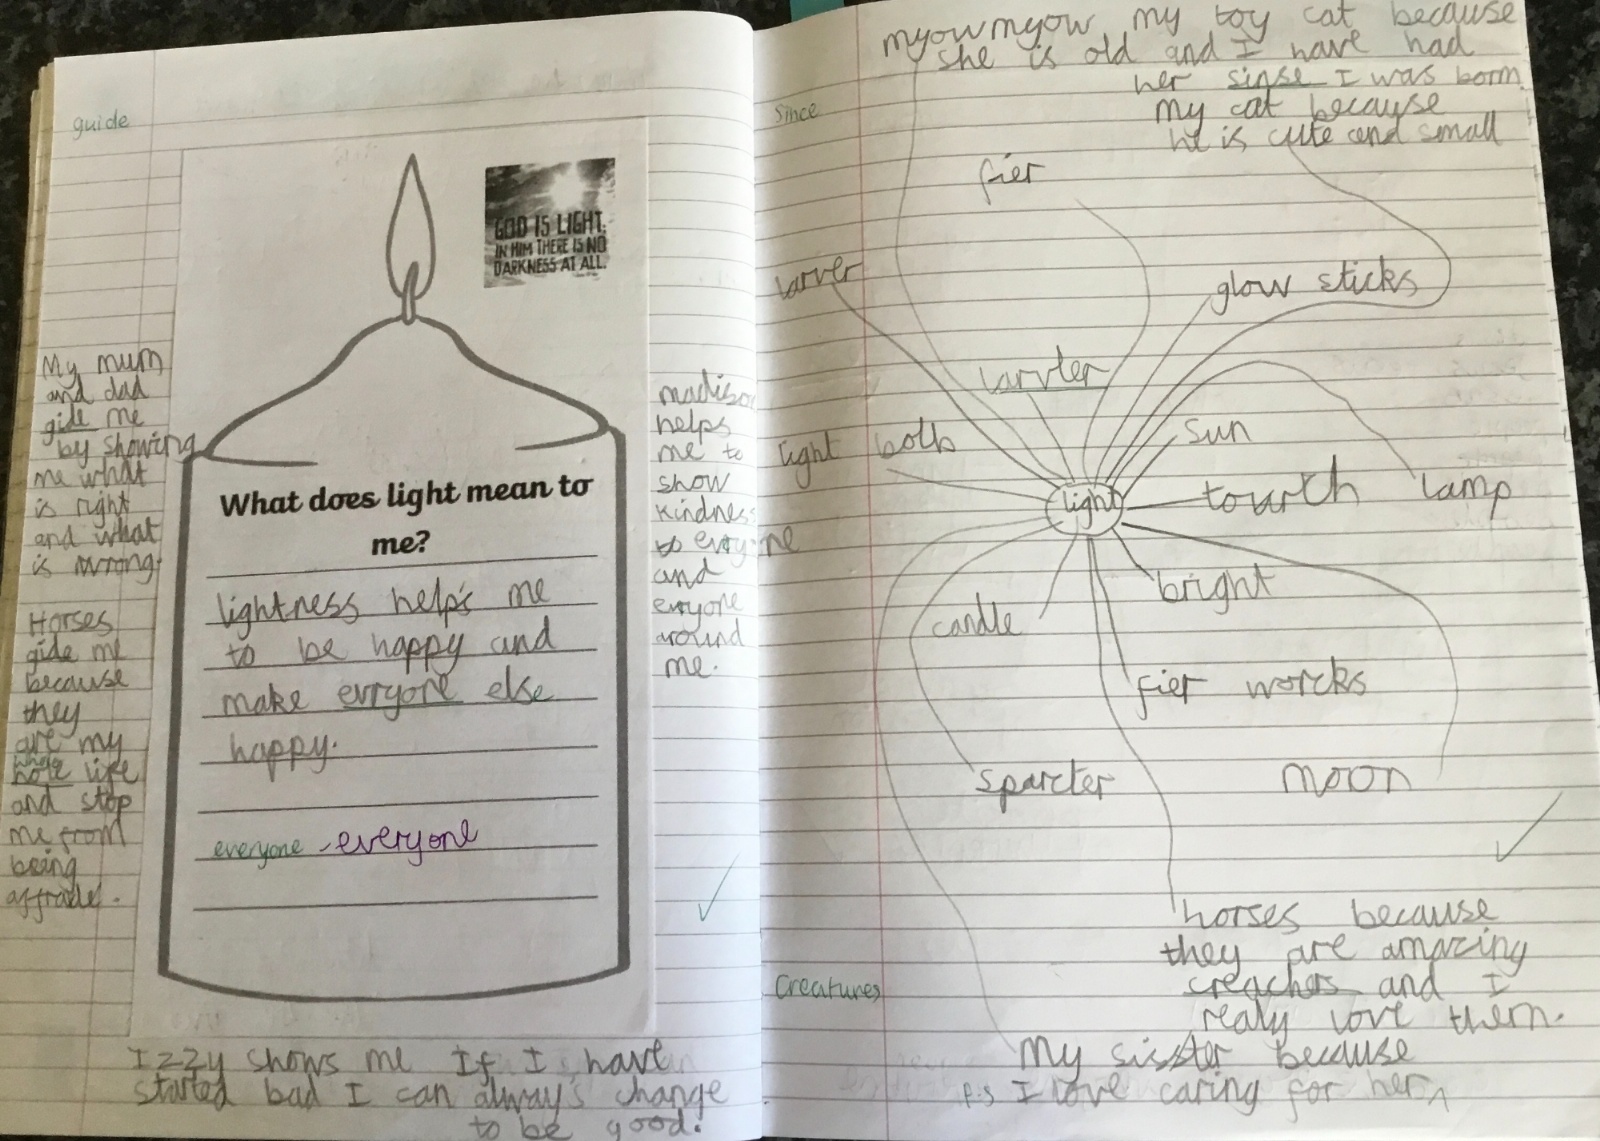 guide
GOD IS LIGHT;
IN HIM THERE IS NO
DARKNESS AT ALL.
My mum
and dad
gide me
by showing
me what
is right
and what
is wrong.
Horses
gide me
because
they
are my
whole
hole life
and stop
me from
being
affrade.
What does light mean to
me?
lightness help's me
to be happy and
make evryone else
happy.
everyone - everyone
madison
helps
me to
show
kindness
to evryone
and
evryone
around
me.
Izzy shows me If I have
started bad I can always change
to be good.
myowmyow my toy cat because
she is old and I have had
her sinse I was born
Since
my cat because
he is cute and small
fier
larver
glow sticks
larvter
light bolb
sun
light
tourth
lamp
bright
candle
fier worcks
sparcter
moon
horses because
they are amazing
Creatures
creachers and I
realy love them.
My sisster because
P.S I love caring for her